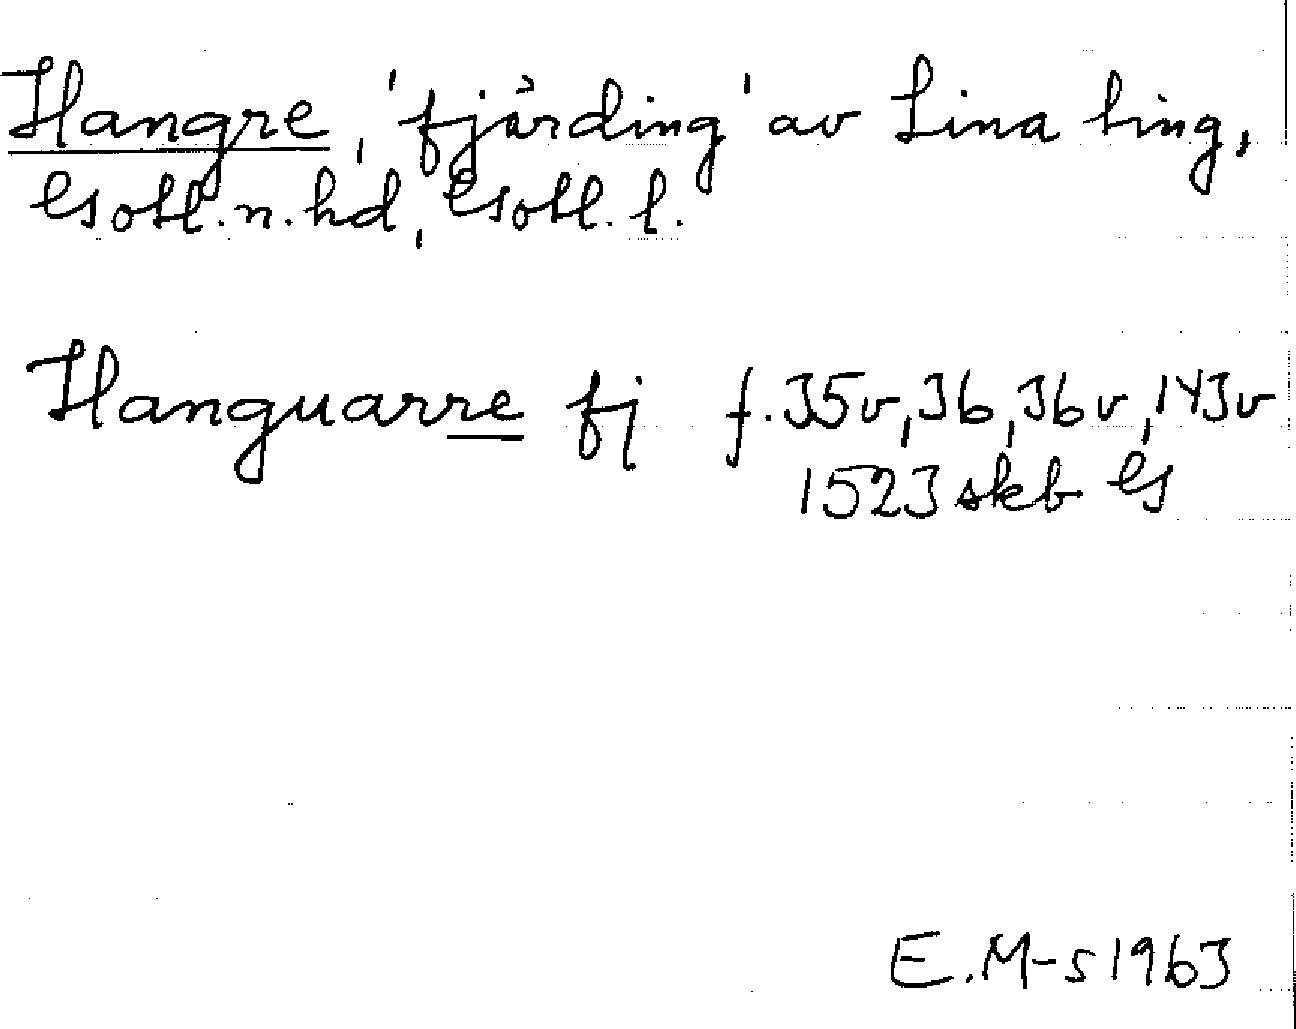 Hangre, 'fjärding' av Lina ting,
Gotl. n. hd, Gotl. l.
Hanguarre fj f. 35v, 36, 36v, 143v
1523 skb G
E. M-s 1963